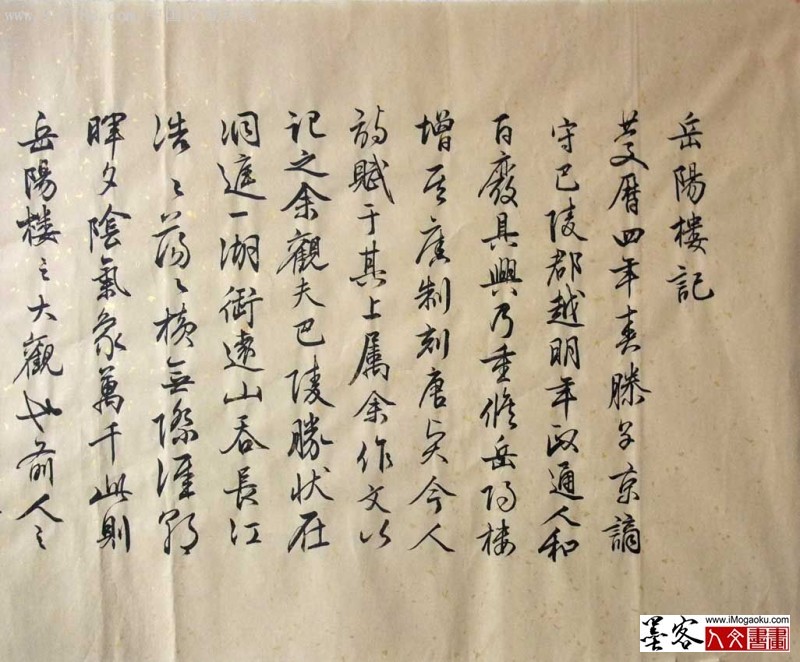 岳陽楼記
慶暦四年春滕子京謫
守巴陵郡越明年政通人和
百廢具興乃重修岳陽楼
增其舊制刻唐贤今人
詩賦于其上属余作文以
記之余觀夫巴陵勝状在
洞庭一湖銜遠山吞長江
浩〻蕩〻横無際涯朝
暉夕陰氣象萬千此則
岳陽樓之大觀也前人之
www.iMogaoku.com
墨客
人文書畫